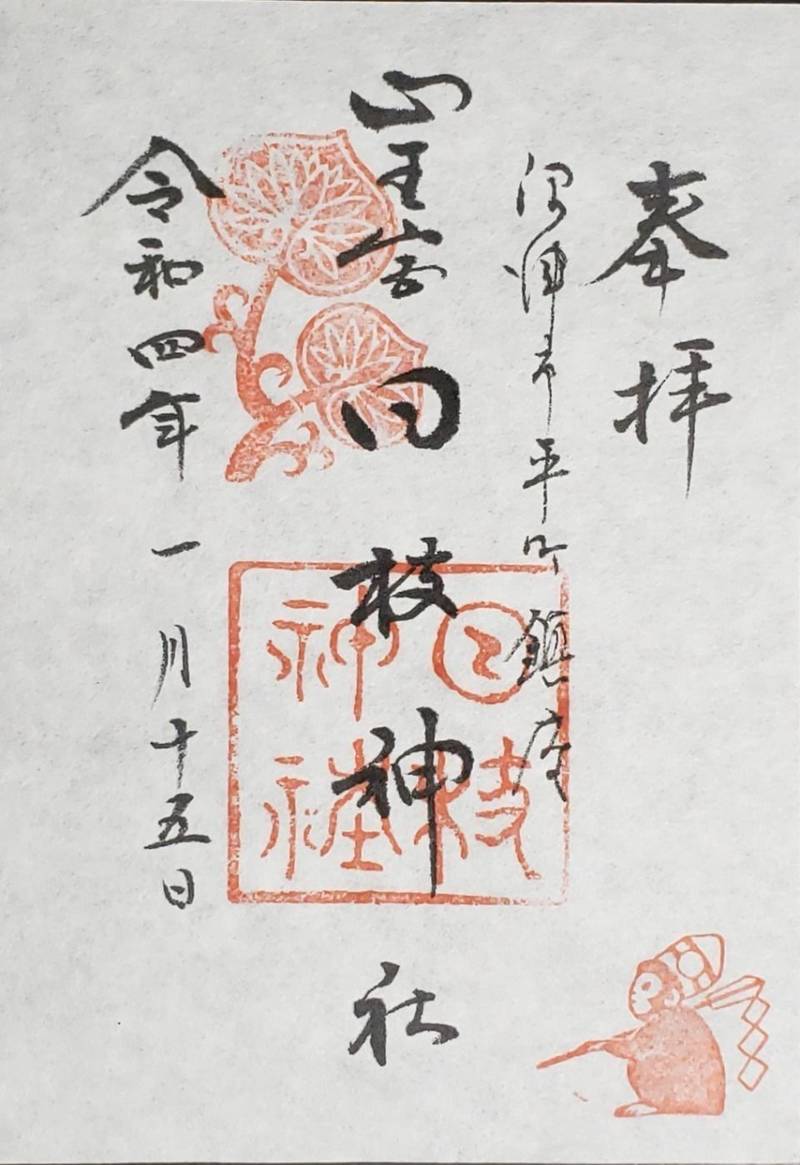 奉拝
沼津市平町鎮座
山王宮日枝神社
令和四年一月十五日
日枝
神社